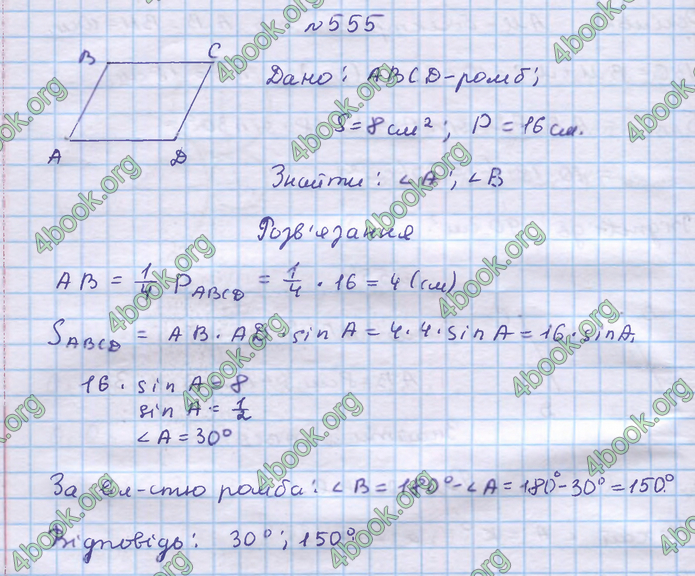 №555
B C
A D
Дано: ABCD-ромб;
S=8 см²; P=16 см.
Знайти: ∠A; ∠B
Розв'язання
AB = 1/4 P_ABCD = 1/4 · 16 = 4 (см)
S_ABCD = AB · AD · sin A = 4 · 4 · sin A = 16 · sin A.
16 · sin A = 8
sin A = 1/2
∠A = 30°
За вл-стю ромба: ∠B = 180° - ∠A = 180° - 30° = 150°.
Відповідь: 30°; 150°.
4book.org